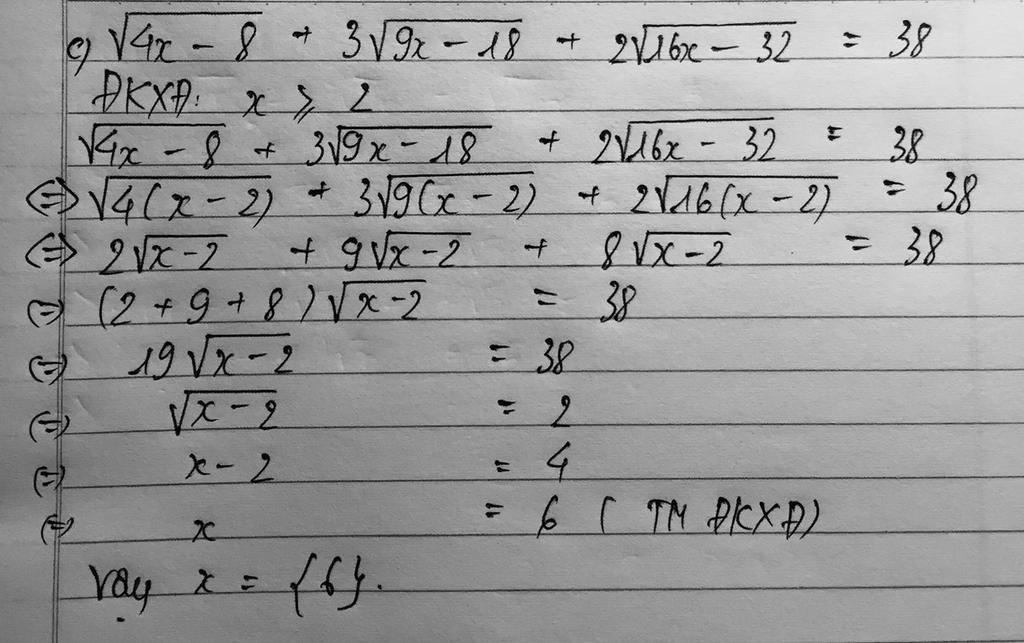 c) √4x - 8 + 3√9x - 18 + 2√16x - 32 = 38
ĐKXĐ: x ⩾ 2
√4x - 8 + 3√9x - 18 + 2√16x - 32 = 38
(=) √4(x - 2) + 3√9(x - 2) + 2√16(x - 2) = 38
(=) 2√x-2 + 9√x-2 + 8√x-2 = 38
(=) (2 + 9 + 8)√x-2 = 38
(=) 19√x-2 = 38
(=) √x-2 = 2
(=) x - 2 = 4
(=) x = 6 ( TM ĐKXĐ)
Vậy x = {6}.